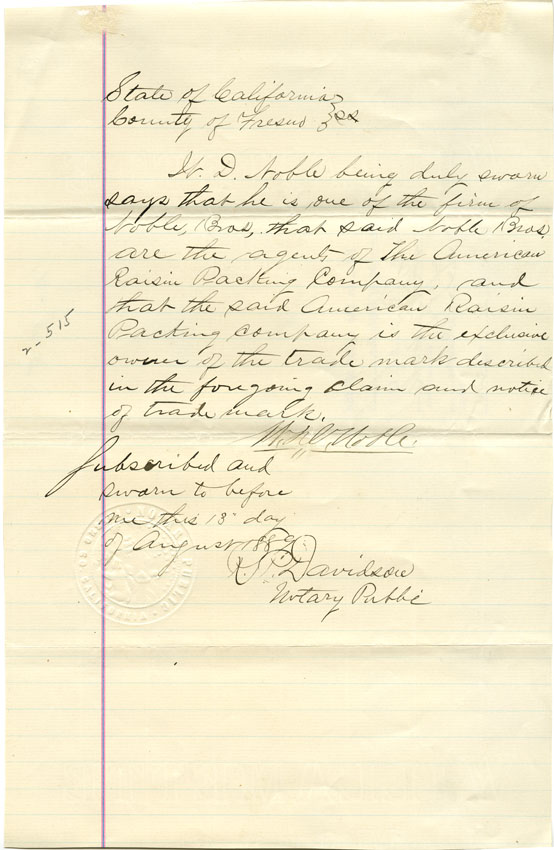 State of California }
County of Fresno } ss
H. D. Noble being duly sworn
says that he is one of the firm of
Noble, Bros, that said Noble Bros
are the agents of The American
Raisin Packing Company, and
that the said American Raisin
Packing company is the exclusive
owner of the trade mark described
in the foregoing claim and notice
of trade mark.
Noble
Subscribed and
sworn to before
me this 13" day
of August 1889.
Davidson
Notary Public
2-515